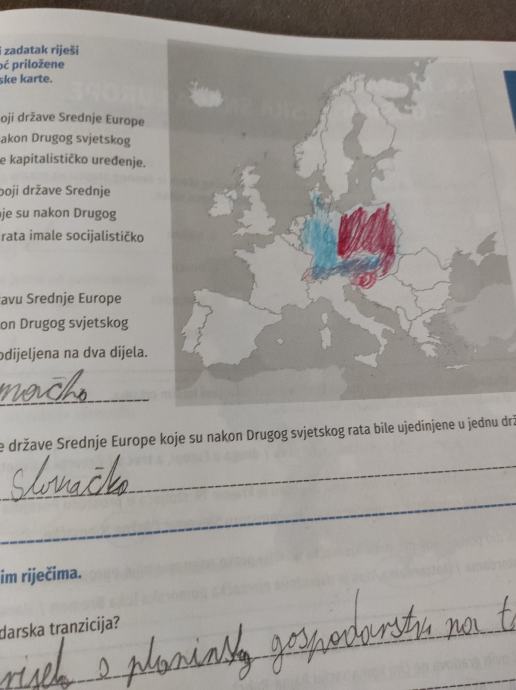 i zadatak riješi
oć priložene
ske karte.
oji države Srednje Europe
akon Drugog svjetskog
e kapitalističko uređenje.
boji države Srednje
je su nakon Drugog
rata imale socijalističko
avu Srednje Europe
on Drugog svjetskog
odijeljena na dva dijela.
močka
e države Srednje Europe koje su nakon Drugog svjetskog rata bile ujedinjene u jednu drž
Slovačka
im riječima.
darska tranzicija?
s planinsk gospodarstva na t